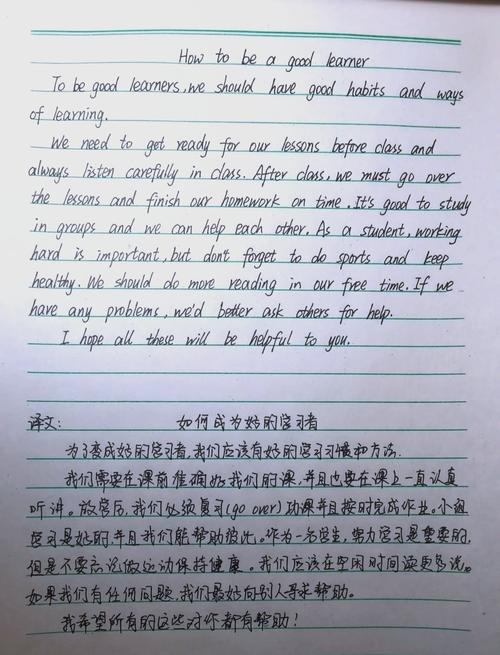 How to be a good learner
To be good learners, we should have good habits and ways
of learning.
We need to get ready for our lessons before class and
always listen carefully in class. After class, we must go over
the lessons and finish our homework on time. It's good to study
in groups and we can help each other. As a student, working
hard is important, but don't forget to do sports and keep
healthy. We should do more reading in our free time. If we
have any problems, we'd better ask others for help.
I hope all these will be helpful to you.
译文: 如何成为好的学习者
为了变成好的学习者,我们应该有好的学习习惯和方法.
我们需要在课前准确的我们的课,并且也要在课上一直认真
听讲。放学后,我们必须复习(go over)功课并且按时完成作业。小组
学习是好的并且我们能帮助彼此。作为一名学生,努力学习是重要的,
但是不要忘记做运动保持健康。我们应该在空闲时间读更多说。
如果我们有任何问题,我们最好向别人寻求帮助。
我希望所有的这些对你都有帮助!